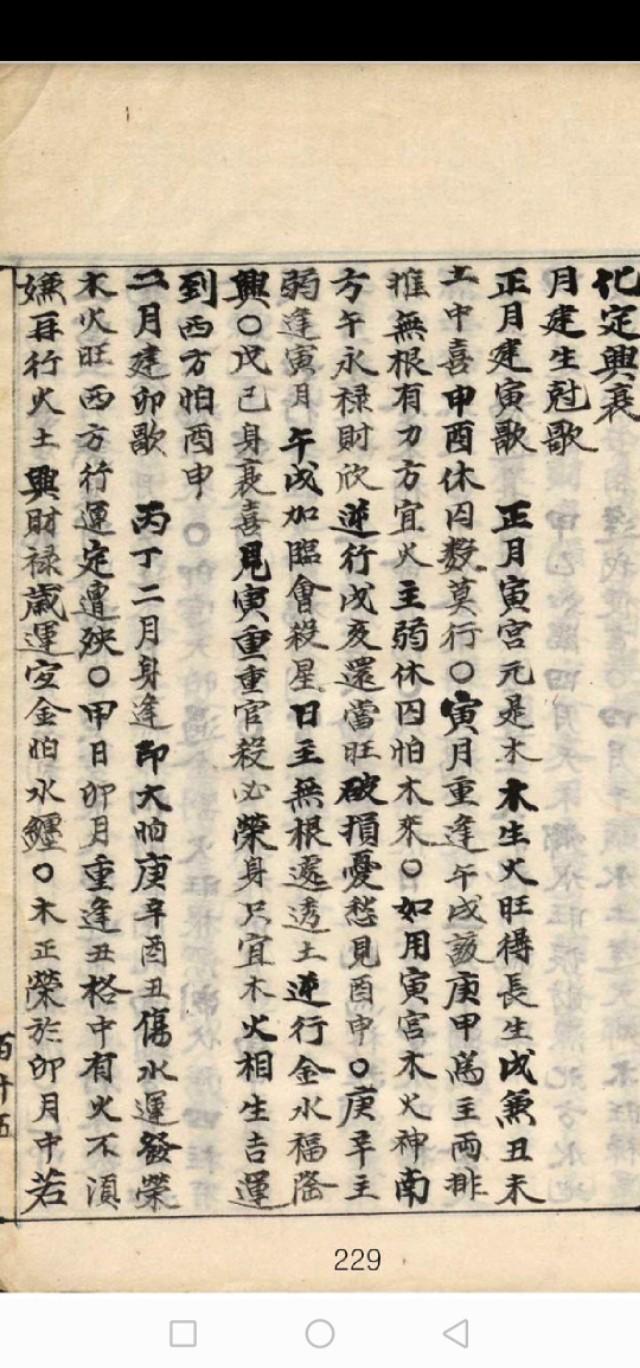 化定興衰
月建生尅歌
正月建寅歌　正月寅宮元是木木生火旺得長生戌無丑未
土中喜申酉休囚數莫行〇寅月重逢午戌該庚甲為主兩排
推無根有力方宜火主弱休囚怕木來〇如用寅宮木火神南
方午永祿財欣逆行戌亥還當旺破損憂愁見酉申〇庚辛主
弱逢寅月午戌加臨會殺星日主無根還透土逆行金水福隆
興〇戊己身衰喜見寅重重官殺必榮身只宜木火相生吉運
到西方怕酉申
二月建卯歌　丙丁二月身逢印大怕庚辛酉丑傷水運發榮
木火旺西方行運定遭殃〇甲日卯月重逢丑格中有火不湏
嫌再行火土興財祿歲運安金怕水纏〇木正榮於卯月中若
百十五
229